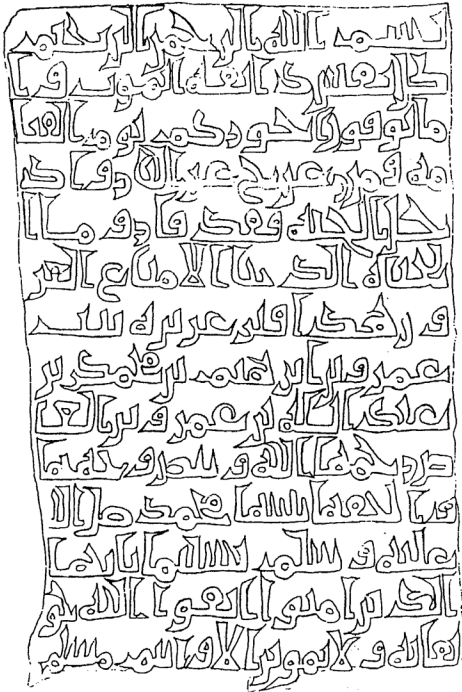 بسم الله الرحمن الرحيم
كل نفس ذائقة الموت وا
نما توفون اجوركم يوم القيا
مة فمن زحزح عن النار واد
خل الجنة فقد فاز وما ا
لحياة الدنيا الا متاع الغر
ور هذا قبر عزيزة بنت
عمرو بن ابرهيم بن محمد بن
عبد الله بن عمرو بن العا
ص رحمها الله ونضر وجهها
والحقها بنبيها محمد صلى الله
عليه وسلم تسليما يا ايها
الذين امنوا اتقوا الله حق
تقاته ولا تموتن الا وانتم مسلم